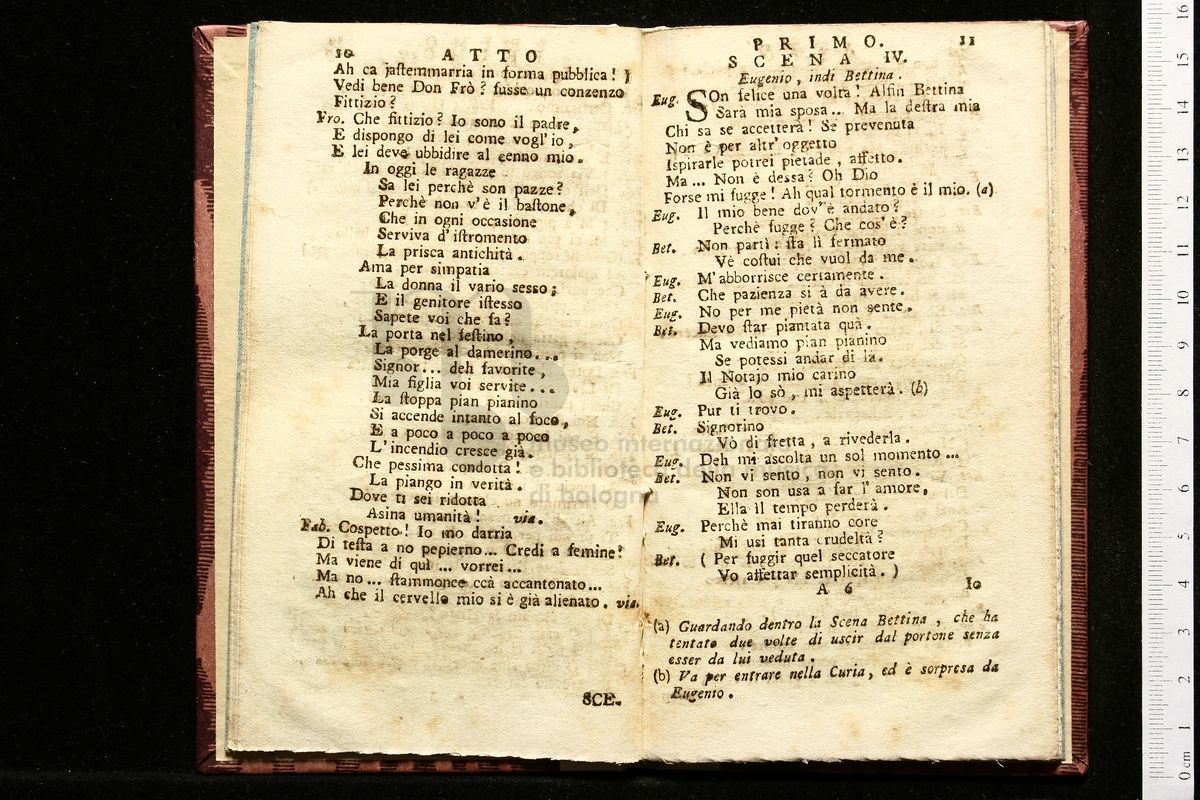 10 ATTO
Ah ca jastemmarria in forma pubblica! )
Vedi bene Don Frò? fusse un conzenzo
Fittizio?
Fro. Che fittizio? Io sono il padre,
E dispongo di lei come vogl'io,
E lei deve ubbidire al cenno mio.
In oggi le ragazze
Sa lei perchè son pazze?
Perchè non v'è il bastone,
Che in ogni occasione
Serviva d'istromento
La prisca antichità.
Ama per simpatia
La donna il vario sesso;
E il genitore istesso
Sapete voi che fa?
La porta nel festino,
La porge al damerino...
Signor... deh favorite,
Mia figlia voi servite...
La stoppa pian pianino
Si accende intanto al foco,
E a poco a poco a poco
L'incendio cresce già.
Che pessima condotta!
La piango in verità.
Dove ti sei ridotta
Asina umanità! via.
Fab. Cospetto! Io mo darria
Di testa a no pepierno... Credi a femine?
Ma viene di quì ... vorrei...
Ma no... stammonce ccà accantonato...
Ah che il cervello mio si è già alienato. via.
SCE-
PRIMO. 11
SCENA IV.
Eugenio, indi Bettina.
Eug. SOn felice una volta! Alfin Bettina
Sarà mia sposa... Ma la destra mia
Chi sa se accetterà! Se prevenuta
Non è per altr'oggetto
Ispirarle potrei pietade, affetto.
Ma ... Non è dessa? Oh Dio
Forse mi fugge! Ah qual tormento è il mio. (a)
Eug. Il mio bene dov'è andato?
Perchè fugge? Che cos'è?
Bet. Non partì: sta lì fermato
Vè costui che vuol da me.
Eug. M'abborrisce certamente.
Bet. Che pazienza si à da avere.
Eug. No per me pietà non sente.
Bet. Devo star piantata quà.
Ma vediamo pian pianino
Se potessi andar di là.
Il Notajo mio carino
Già lo sò, mi aspetterà. (b)
Eug. Pur ti trovo.
Bet. Signorino
Vò di fretta, a rivederla.
Eug. Deh mi ascolta un sol momento ...
Bet. Non vi sento, non vi sento.
Non son usa a far l'amore,
Ella il tempo perderà.
Eug. Perchè mai tiranno core
Mi usi tanta crudeltà?
Bet. ( Per fuggir quel seccatore
Vo affettar semplicità. )
A 6 Io
(a) Guardando dentro la Scena Bettina, che ha
tentato due volte di uscir dal portone senza
esser da lui veduta.
(b) Va per entrare nella Curia, ed è sorpresa da
Eugenio.
museo internazionale
e biblioteca della musica
di bologna
0 cm 1 2 3 4 5 6 7 8 9 10 11 12 13 14 15 16